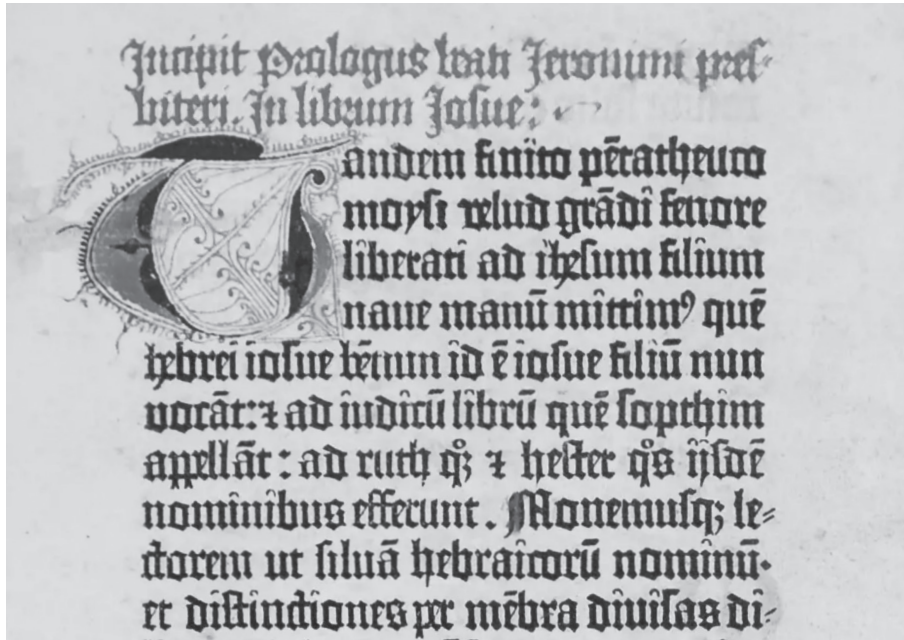 Incipit Prologus beati Jeronimi pres-
biteri. In librum Josue:
Tandem finito pētatheuco
moysi velud grādi fenore
liberati ad ihesum filium
naue manū mittimꝰ quē
hebrei iosue bēnum id ē iosue filiū nun
vocāt: ⁊ ad iudicū librū quē sopthim
appellāt: ad ruth qꝫ ⁊ hester qͦs ijsdē
nominibus efferunt. Monemusqꝫ le-
ctorem ut siluā hebraicorū nominū·
et distinctiones per mēbra diuisas di-